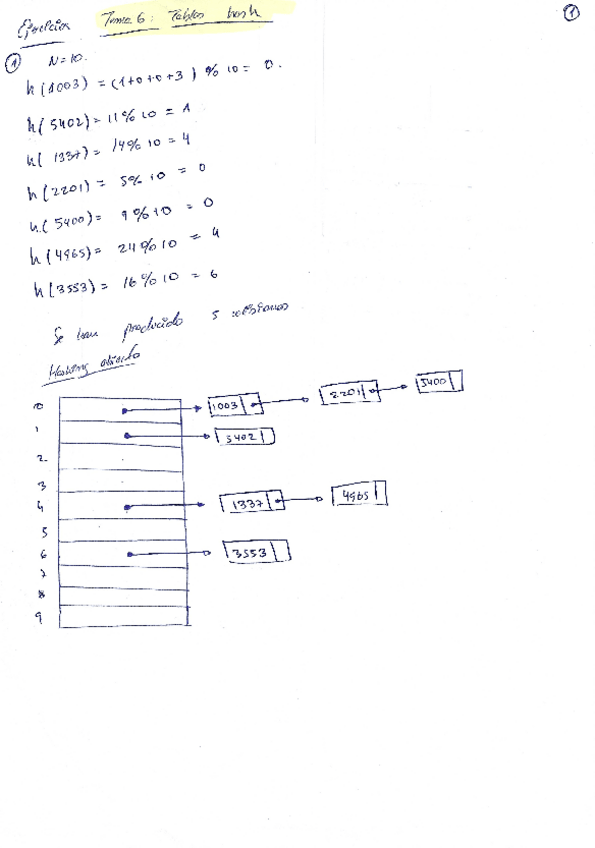 Ejercicios Tema 6: Tablas hash
1
1 N=10.
h(1003) = (1+0+0+3) % 10 = 0.
h(5402) = 11 % 10 = 1
h(1337) = 14 % 10 = 4
h(2201) = 5 % 10 = 0
h(5400) = 9 % 10 = 0
h(4965) = 24 % 10 = 4
h(3553) = 16 % 10 = 6
Se han producido 5 colisiones
Hashing abierto
0 1003 2201 5400
1 5402
2
3
4 1337 4965
5
6 3553
7
8
9